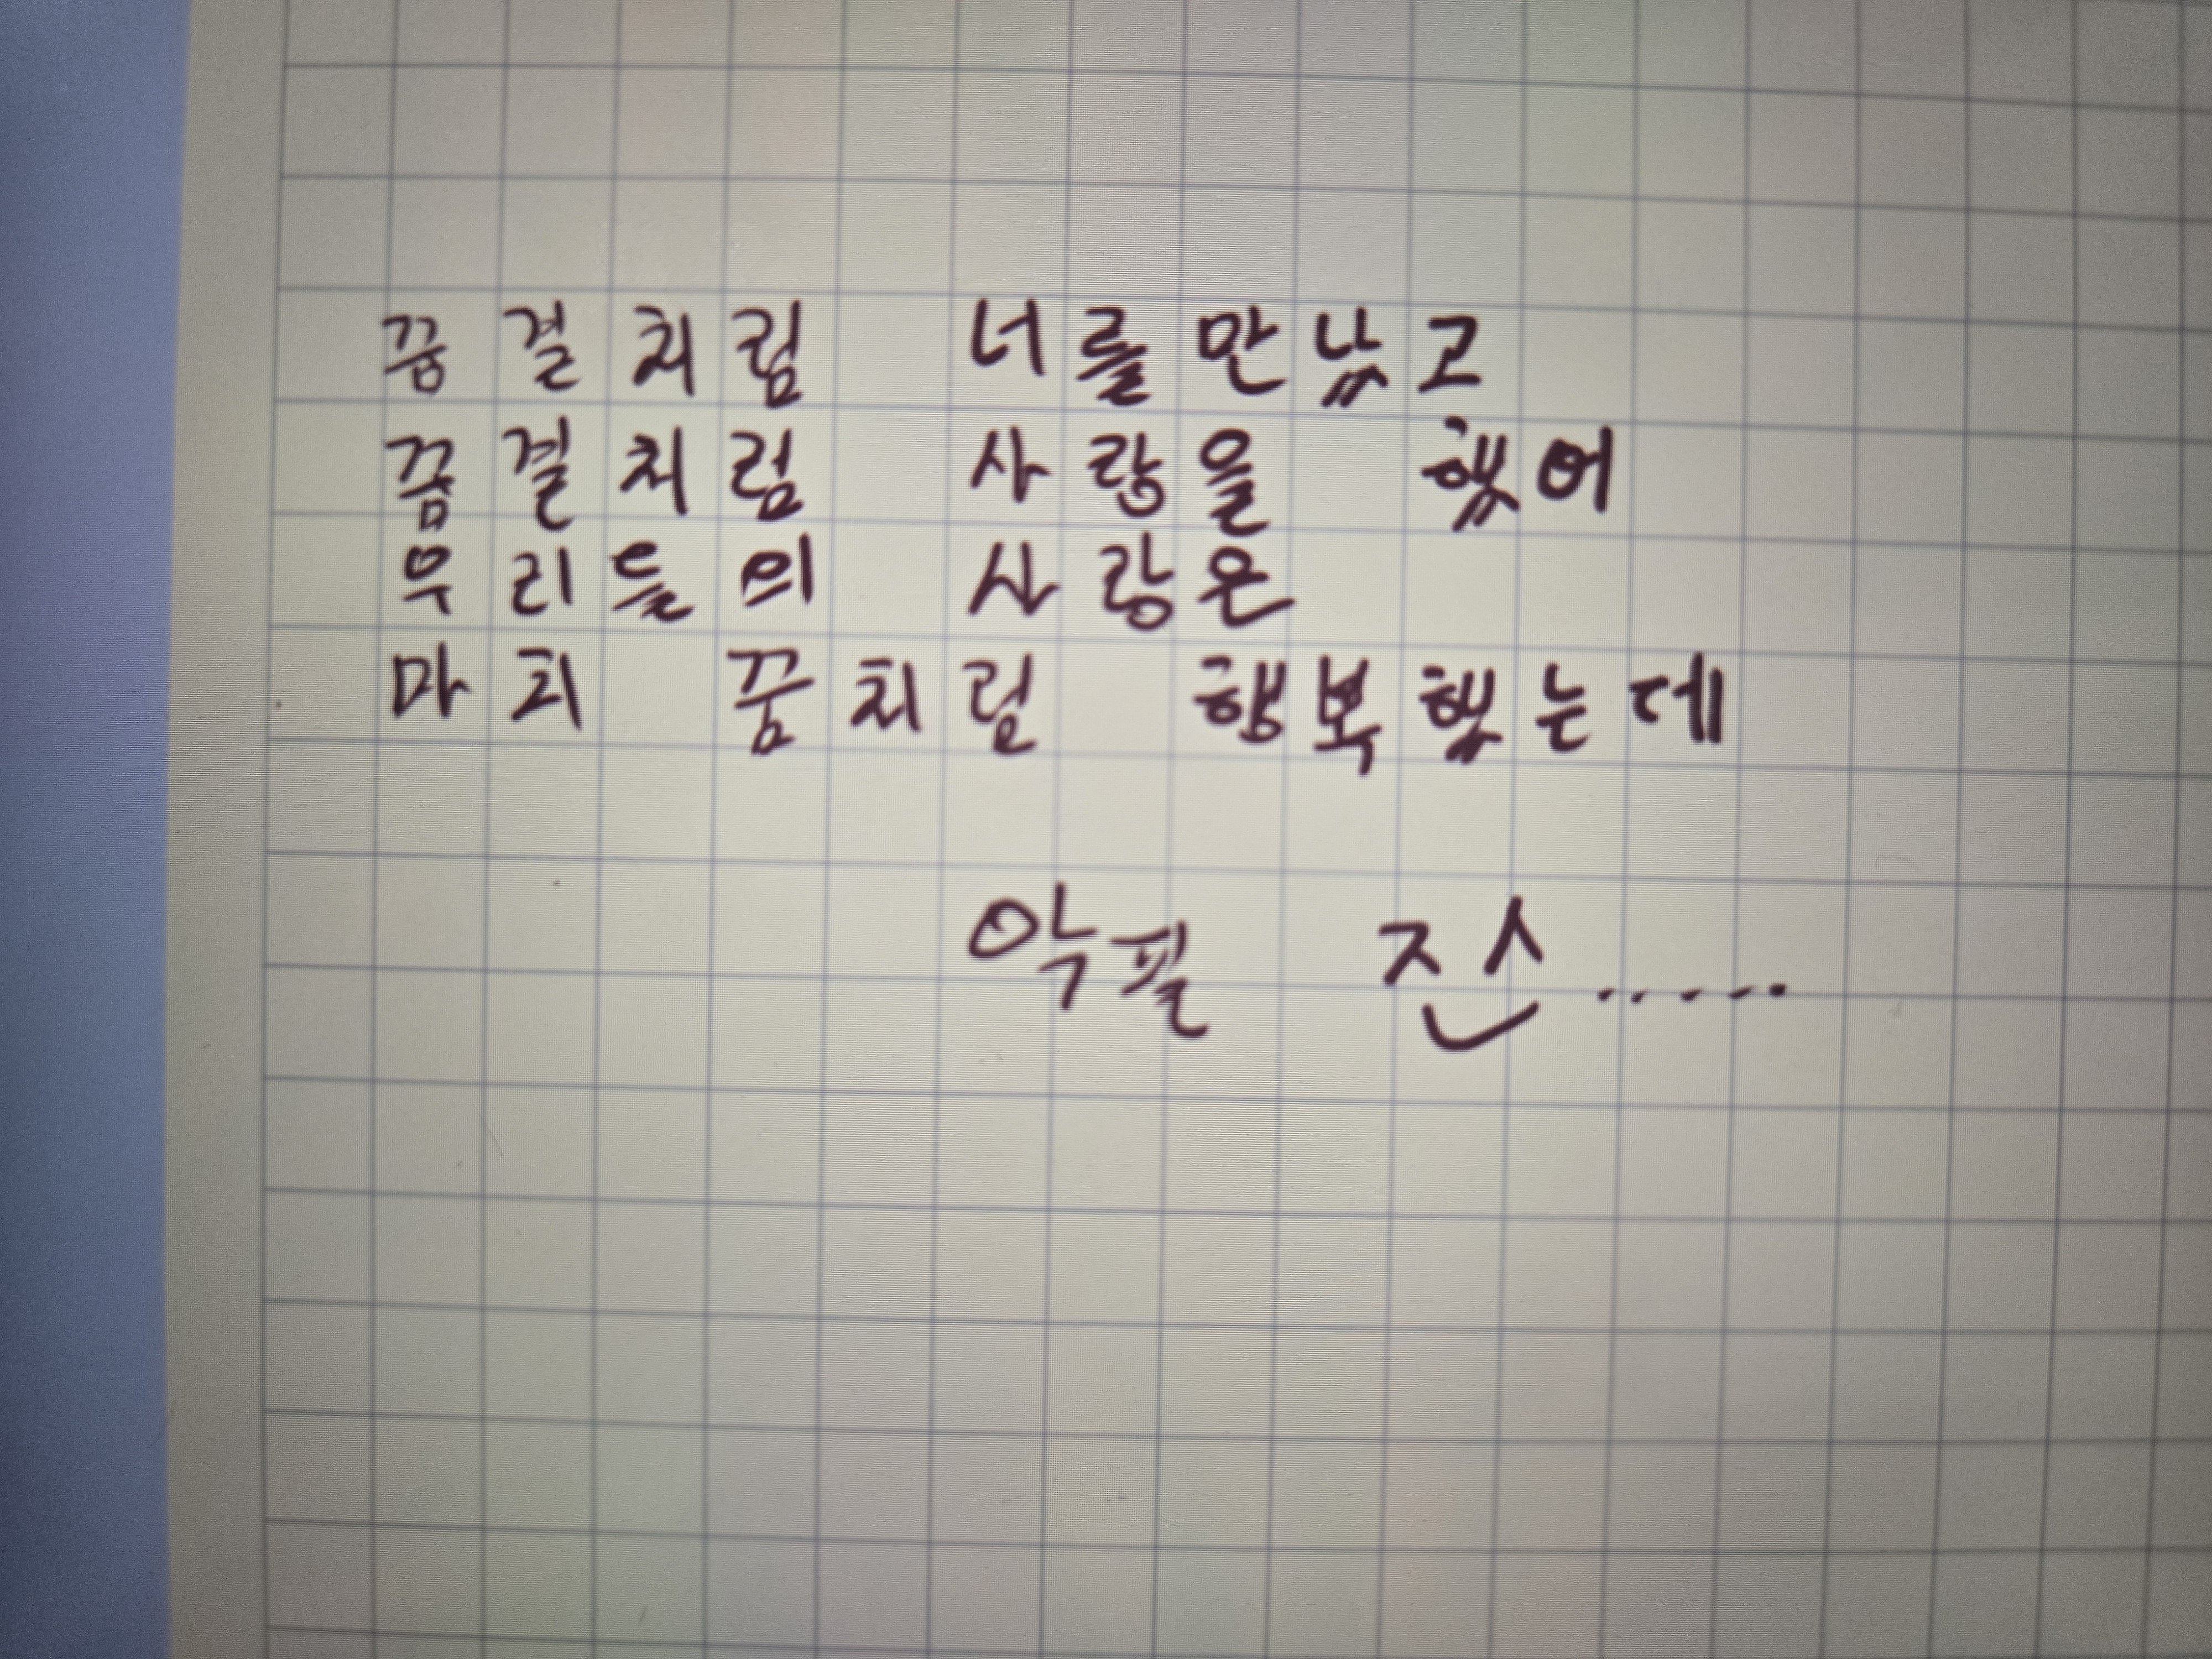 꿈결처럼 너를만났고
꿈결처럼 사랑을 했어
우리들의 사랑은
마치 꿈처럼 행복했는데
악필 ㅈㅅ.....